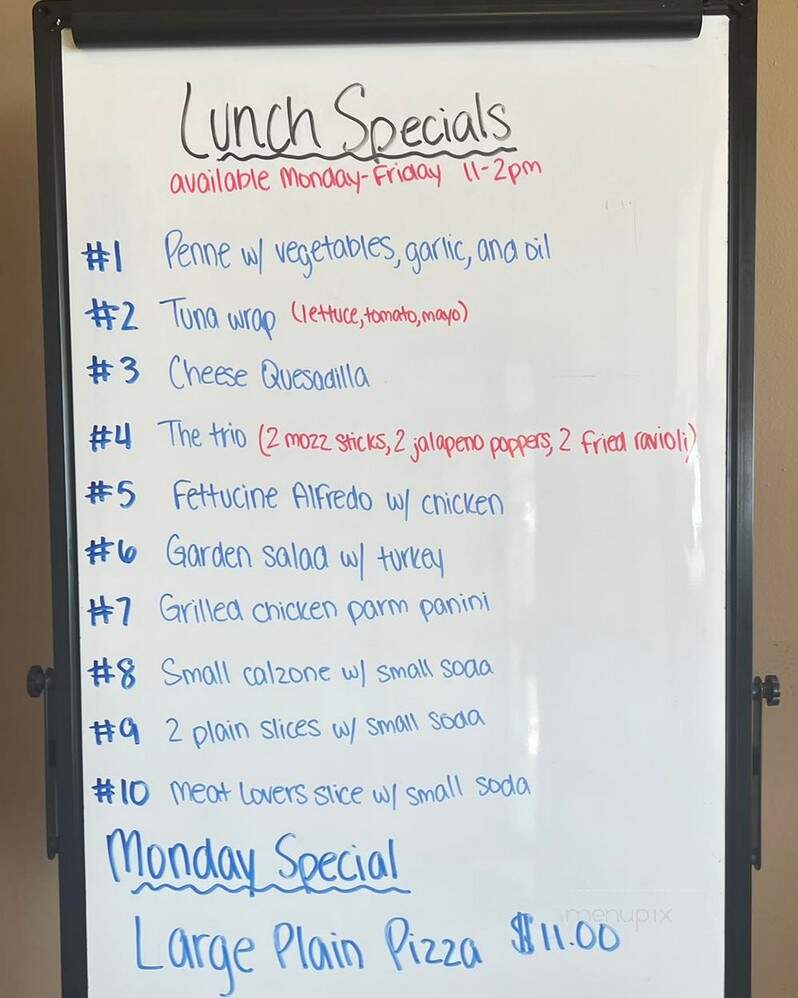 Lunch Specials
available Monday-Friday 11-2pm
#1 Penne w/ vegetables, garlic, and oil
#2 Tuna wrap (lettuce, tomato, mayo)
#3 Cheese Quesadilla
#4 The trio (2 mozz sticks, 2 jalapeno poppers, 2 fried ravioli)
#5 Fettucine Alfredo w/ chicken
#6 Garden salad w/ turkey
#7 Grilled chicken parm panini
#8 Small calzone w/ small soda
#9 2 plain slices w/ small soda
#10 meat lovers slice w/ small soda
Monday Special
menupix
Large Plain Pizza $11.00